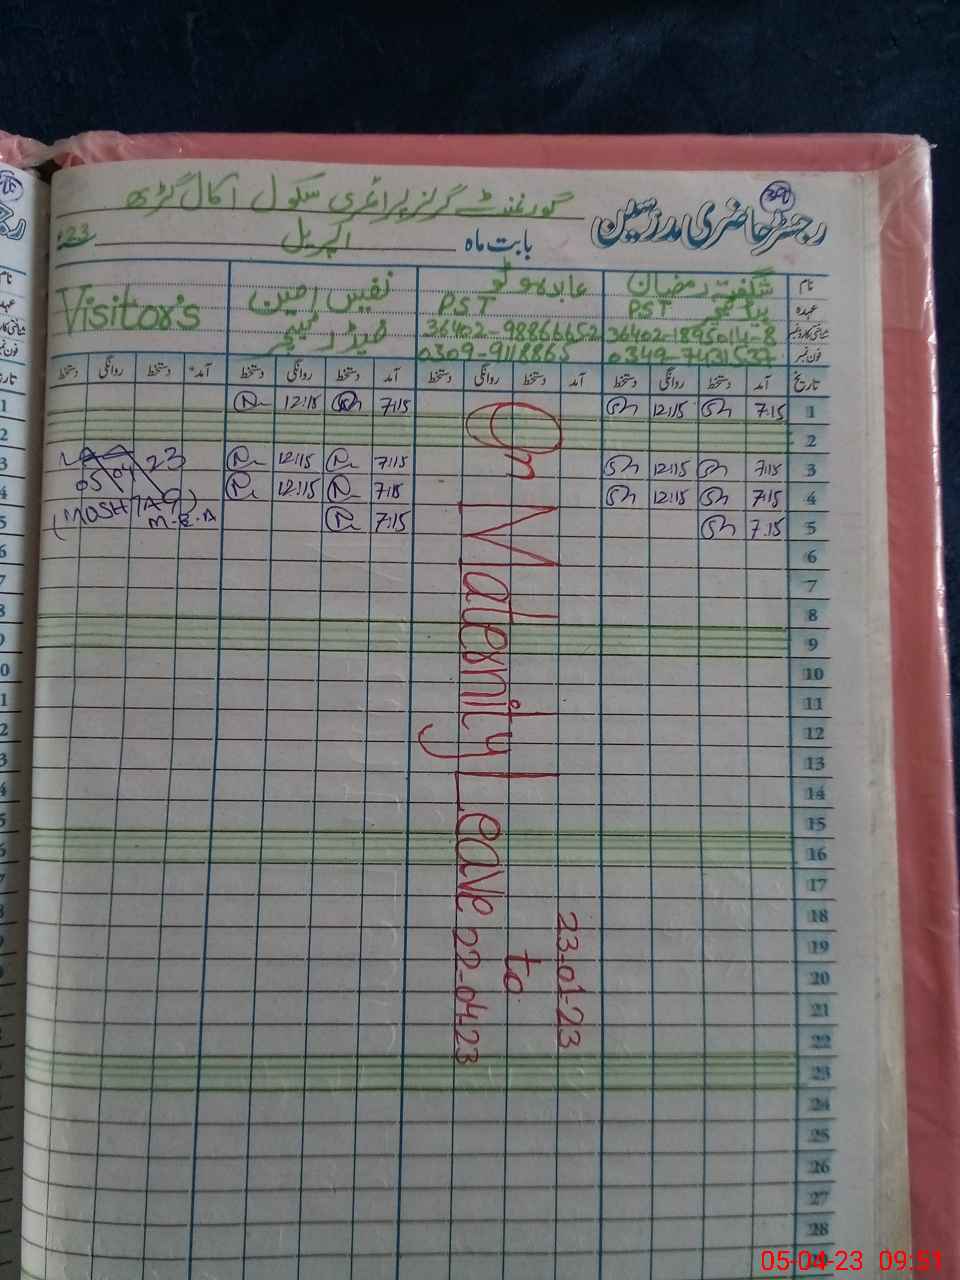 گورنمنٹ گرلز پرائمری سکول اکال گڑھ
رجسٹر حاضری مدرسین
بابت ماہ اپریل 23
نام شگفتہ رمضان عابدہ وٹو نفیس امین Visitor's
عہدہ ہیڈ ٹیچر PST PST فیڈر ٹیچر
شناختی کارڈ نمبر 36402-1895014-8 36402-98866652
فون نمبر 0349-7431537 0309-9118865
تاریخ آمد دستخط روانگی دستخط آمد دستخط روانگی دستخط آمد دستخط روانگی دستخط آمد دستخط روانگی دستخط
1 7:15 12:15 7:15 12:15
2
3 7:15 12:15 7:15 12:15
4 7:15 12:15 7:15 12:15
5 7:15 7:15
05 04 23
(MOSHTAQ)
M.E.A
6
7
8
9
10
11
12
13
14
15
16
17
18
19
20
21
22
23
24
25
26
27
28
29
On Maternity Leave
23-01-23
to
22-04-23
05-04-23 09:51